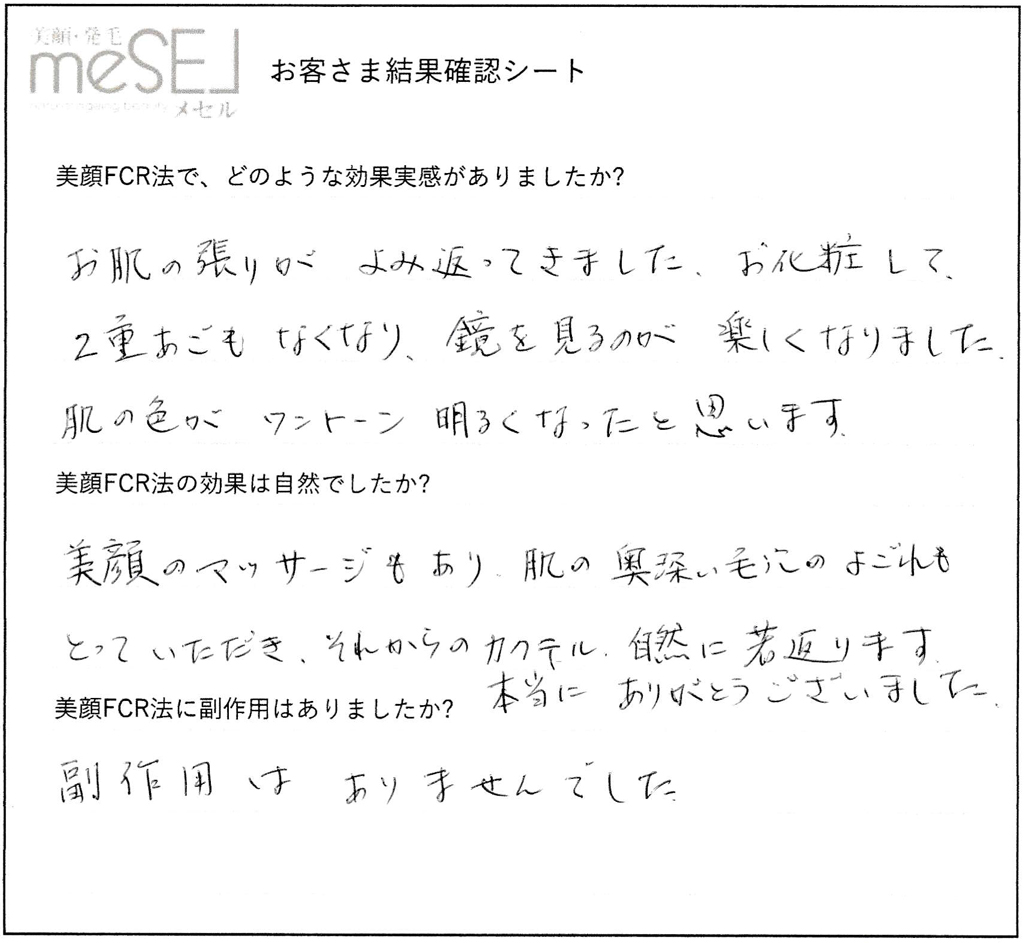 美顔・発毛
meSEL
メセル
お客さま結果確認シート
美顔FCR法で、どのような効果実感がありましたか?
お肌の張りが よみ返ってきました、お化粧して、
2重あごも なくなり、鏡を見るのが 楽しくなりました。
肌の色が ワントーン 明るくなったと思います。
美顔FCR法の効果は自然でしたか?
美顔のマッサージもあり、肌の奥深い毛穴のよごれも
とっていただき、それからのカクテル、自然に若返ります。
本当に ありがとうございました。
美顔FCR法に副作用はありましたか?
副作用は ありませんでした。